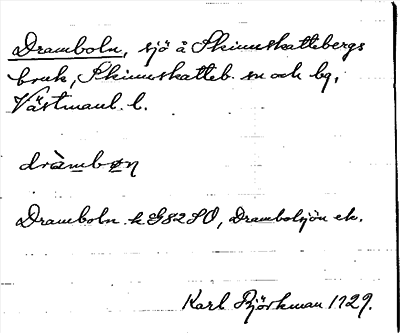 Dramboln, sjö å Skinnskattebergs
bruk, Skinnskatteb. sn och bg,
Västmanl. l.
dràmbøn
Dramboln k G82SO, Drambolsjön ek.
Karl Björkman 1929.